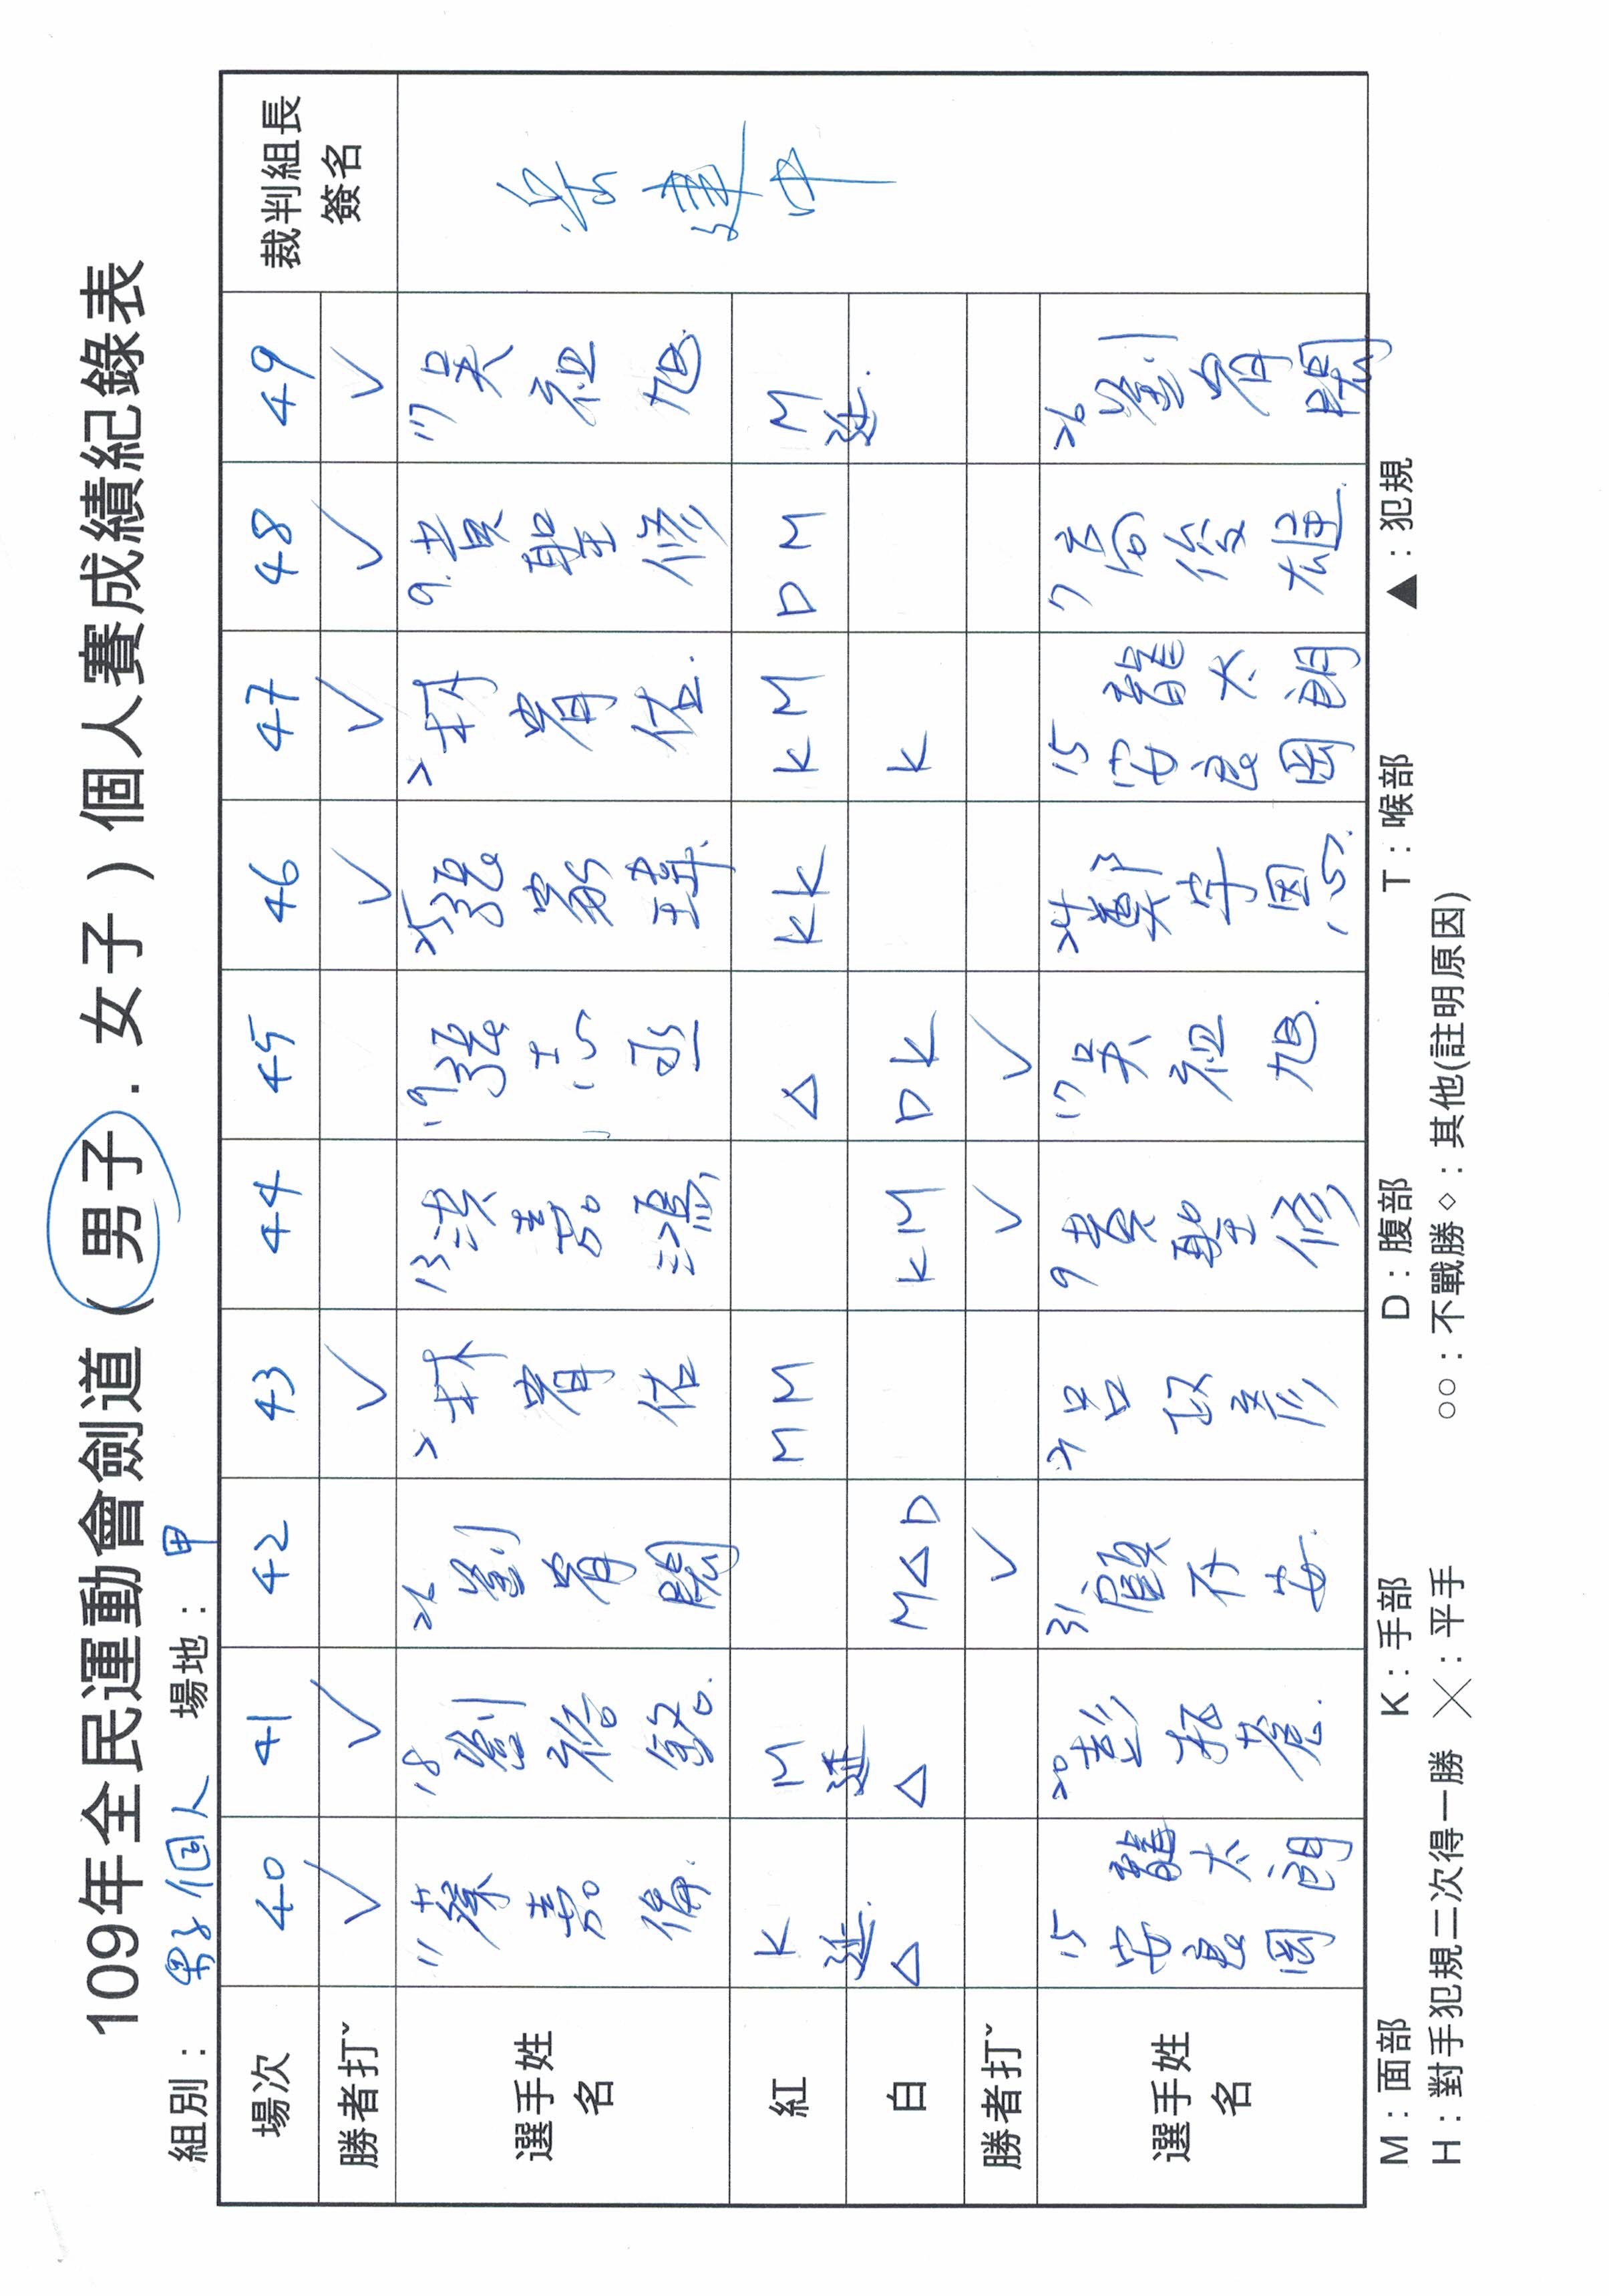 109年全民運動會劍道(男子．女子)個人賽成績紀錄表
組別： 男子個人 場地： 甲
場次 40 41 42 43 44 45 46 47 48 49 裁判組長簽名
勝者打ˇ ✓ ✓ ✓ ✓ ✓ ✓ ✓
選手姓名 11 蔡嘉倫 18 劉 26 劉宥閎 2 林宥佑 13 洪嘉鴻 19 張志丞 25 張 2 林宥佑 9 黃聖修 17 吳祖旭
紅 K 延 M 延 MM △ KK KM DM M 延
白 △ △ M△D KM DK K
勝者打ˇ ✓ ✓ ✓
選手姓名 15 安良岡龍太朗 20 彭 31 顏 安 21 呂政彥 9 黃聖修 17 吳祖旭 24 鄭宇恩 15 安良岡龍太朗 7 高俊雄 26 劉宥閎
M：面部 K：手部 D：腹部 T：喉部 ▲：犯規
H：對手犯規二次得一勝 ╳：平手 ○○：不戰勝◇：其他(註明原因)